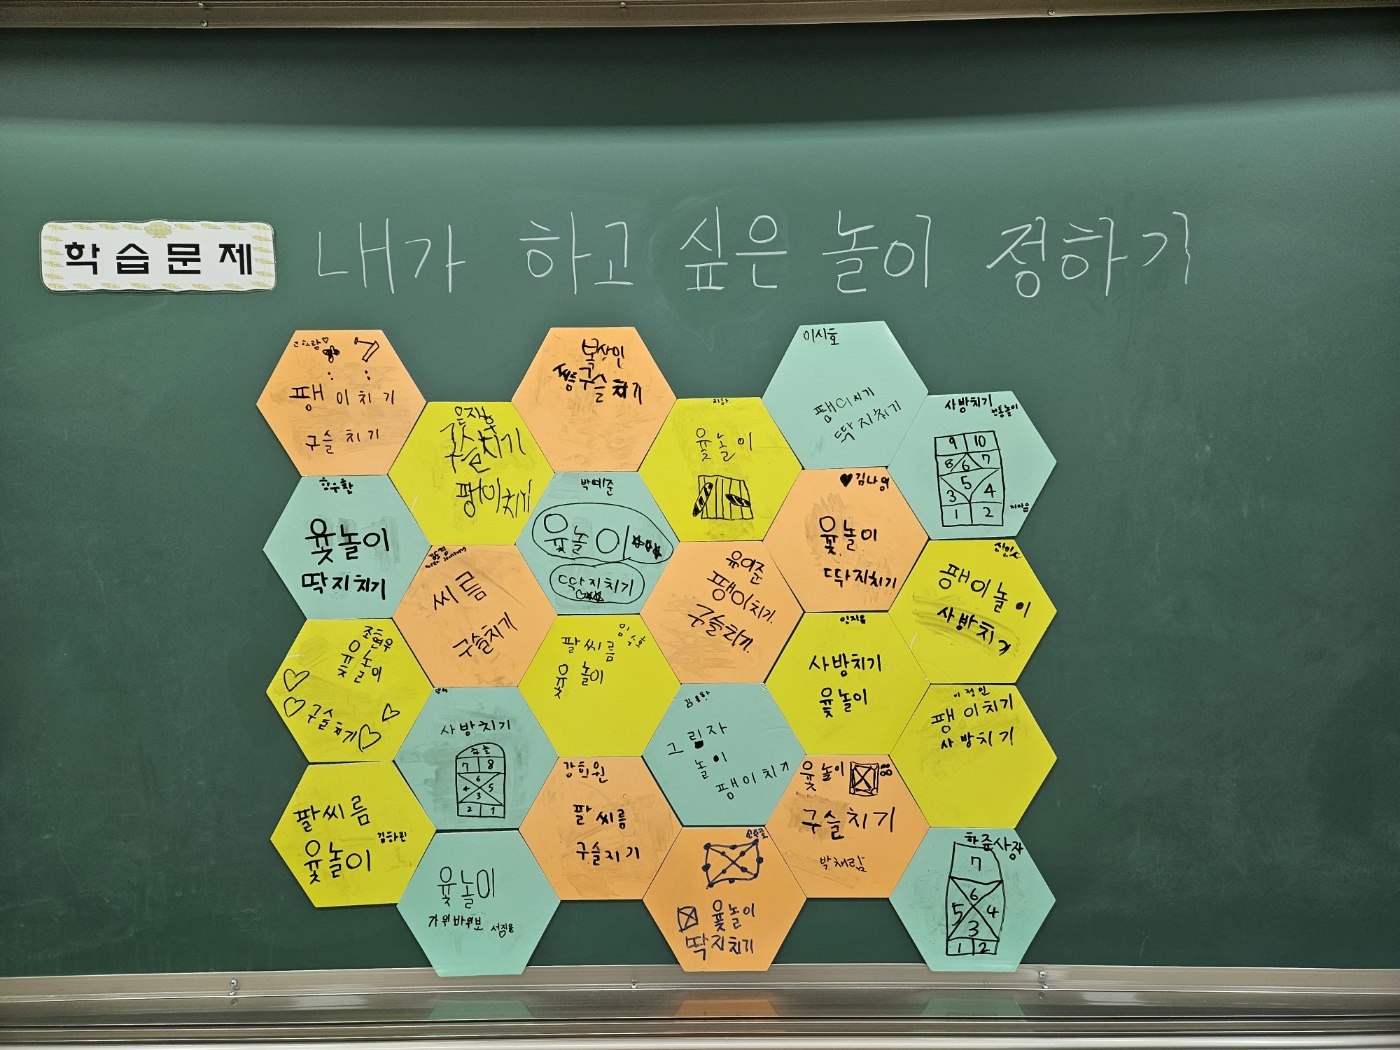 학습문제
내가 하고 싶은 놀이 정하기
팽이치기
구슬치기
구슬치기
팽이치기
구슬치기
윷놀이
이시호
팽이치기
딱지치기
사방치기
전통놀이
9 10
8 6 7
5
3 4
1 2
한수환
윷놀이
딱지치기
씨름
구슬치기
박예준
윷놀이
딱지치기
유이준
팽이치기
구슬치기
윷놀이
딱지치기
팽이놀이
사방치기
조현우
윷놀이
구슬치기
사방치기
7 8
6
4 5
3
2 1
팔씨름
윷놀이
그림자
놀이
팽이치기
사방치기
윷놀이
이정인
팽이치기
사방치기
팔씨름
김하린
윷놀이
윷놀이
가위바위보
강희원
팔씨름
구슬치기
윷놀이
딱지치기
윷놀이
구슬치기
박채람
7
6
5 4
3
1 2